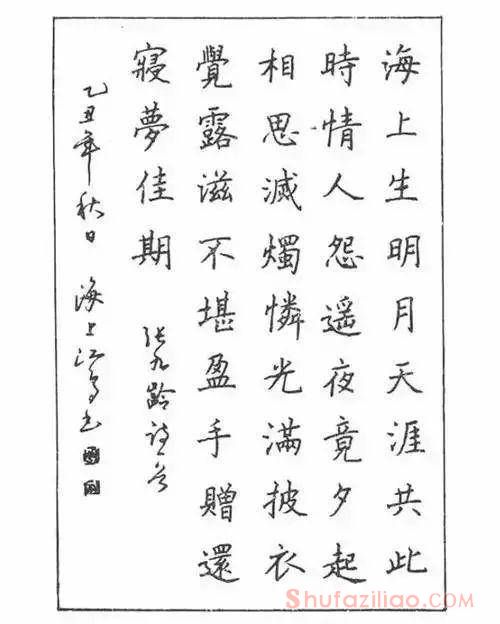 海上生明月天涯共此
時情人怨遥夜竟夕起
相思滅燭憐光滿披衣
覺露滋不堪盈手贈還
寢夢佳期 张九齡诗一首
乙丑年秋日 海上江书
Shufaziliao.com